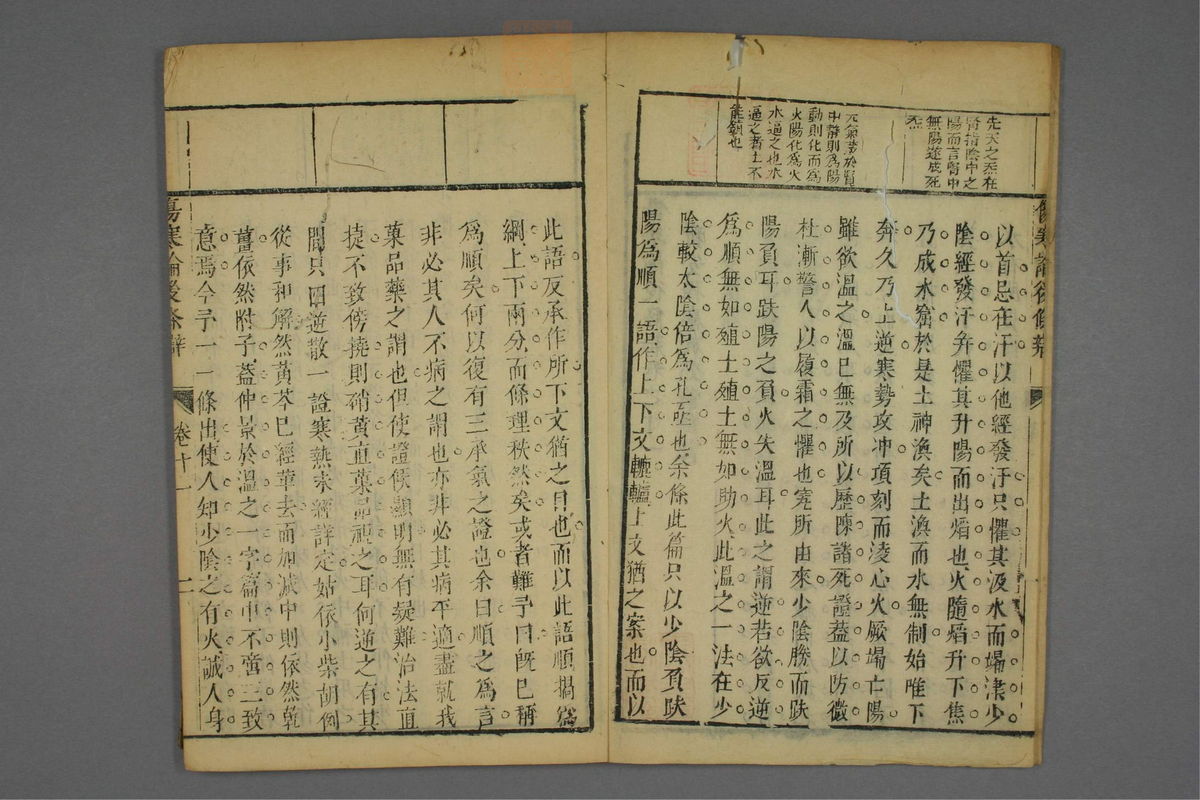 傷寒論後條辨
先天之炁在
腎指陰中之
陽而言腎中
無陽遂成死
炁
元氣藏於腎
中靜則為陽
動則化而為
火陽化為火
水逼之也水
逼之者土不
能鎮也
以首忌在汗以他經發汗只懼其汲水而竭津少
陰經發汗并懼其升陽而出焰也火隨焰升下焦
乃成水窟於是土神渙矣土渙而水無制始唯下
奔久乃上逆寒勢攻冲項刻而淩心火厥竭亡陽
雖欲溫之溫已無及所以歷陳諸死證葢以防微
杜漸警人以履霜之懼也究所由來少陰勝而趺
陽負耳趺陽之負火失溫耳此之謂逆若欲反逆
爲順無如殖土殖土無如助火此溫之一法在少
陰較太陰倍爲孔亟也余條此篇只以少陰負趺
陽爲順一語作上下文轆轤上文猶之案也而以
此語反承作所下文猶之目也而以此語順揭爲
綱上下兩分而條理秩然矣或者難予曰旣已稱
爲順矣何以復有三承氣之證也余曰順之爲言
非必其人不病之謂也亦非必其病平適盡就我
菓品藥之謂也但使證候顯明無有疑難治法直
㨗不致傍撓則硝黃直菓品視之耳何逆之有其
間只四逆散一證寒熱未經詳定姑依小柴胡例
從事和解然黃芩已經革去而加減中則依然乾
薑依然附子葢仲景於溫之一字篇中不啻三致
意焉今予一一條出使人知少陰之有火誠人身
傷寒論後條辨
卷十一
二